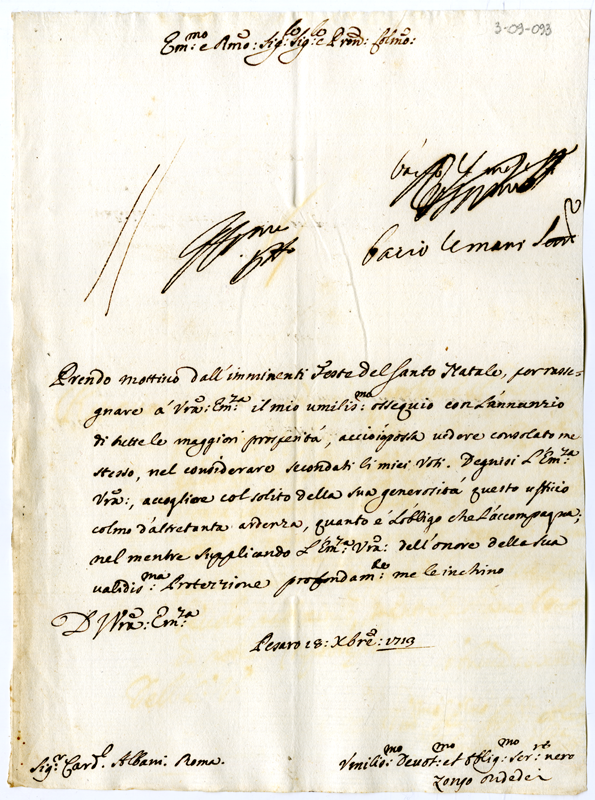 3-09-093
Em:mo e Rmo: Sig:r Sig:r e Prōn: Colmo:
bacio le mani
Prendo mottivo dall'imminenti Feste del Santo Natale, per rasse=
gnare á Vrã: Em:za il mio umiliss:mo ossequio con l'annunzio
di tutte le maggiori prosperitá, acció possa vedere consolato me
stesso, nel considerare secondati li miei Voti. Degnisi l'Em:za
Vrã:, accogliere col solito della sua generositá questo ufficio
colmo d'altretanta ardenza, quanto é l'obbligo che l'accompagna;
nel mentre supplicando l'Em:za Vrã: dell'onore della sua
validis:ma Protezzione profondam:te me le inchino
D' Vrã: Em:za
Pesaro 18: Xbrē: 1713
Sig:r Card:l Albani. Roma.
Vmilis:mo Devot:mo et Obblig:mo Ser:re vero
Zongo Ondedei